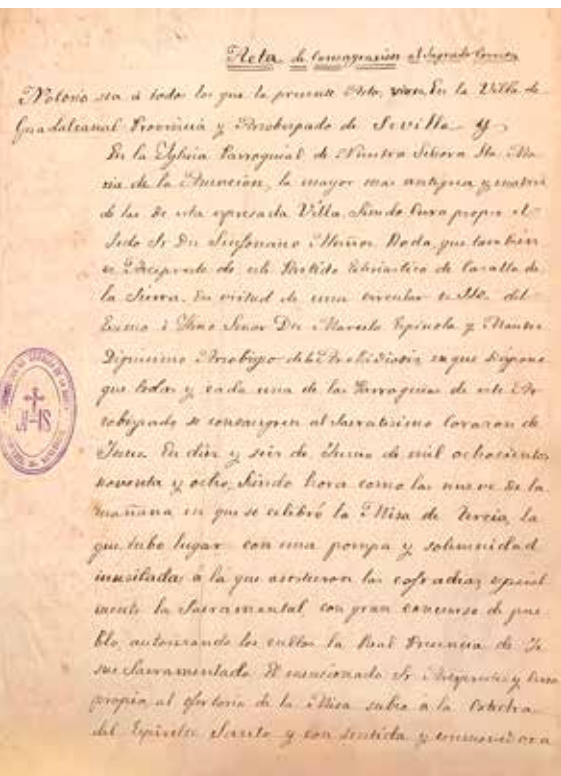 Acta de Consagración al Sagrado Corazon
Notorio sea á todos los que la presente Acta, vieren En la Villa de
Guadalcanal Provincia y Arzobispado de Sevilla y
En la Yglesia Parroquial de Nuestra Señora Sta. Ma-
ria de la Asuncion, la mayor mas antigua y matriz
de las de esta expresada Villa, Siendo Cura propio el
Ldo Sr Dn Sinforiano Muñoz Roda, que tambien
es Arcipreste de este Partido Eclesiastico de Cazalla de
la Sierra. En virtud de una circular de del
Excmo é Yltmo Señor Dn Marcelo Spinola y Maestre
Dignisimo Arzobispo de la Archidiocesis en que dispone
que todas y cada una de las Parroquias de este Ar-
zobispado se consangren al Sacratisimo Corazon de
Jesus En diez y seis de Junio de mil ochocientos
noventa y ocho, Siendo hora como las nueve de la
mañana en que se celebró la Misa de Tercia, la
que tubo lugar con una pompa y solemnidad
inusitada, á la que asistieron las cofradias, especial
mente la Sacramental, con gran concurso de pue-
blo, autorizando los cultos la Real Presencia de Je-
sus Sacramentado El mencionado Sr Arcipreste y Cura
propio, al ofertorio de la Misa subio a la Catedra
del Espiritu Santo y con sentida y conmovedora